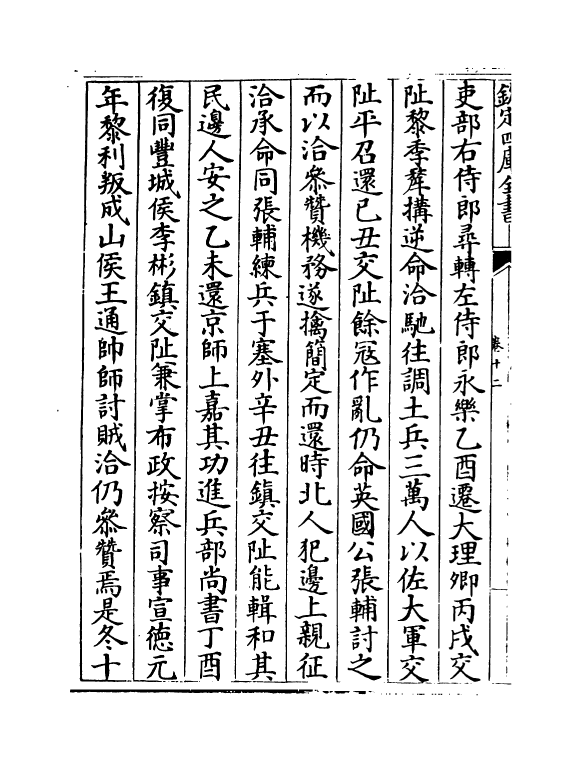 欽定四庫全書
卷十二
吏部右侍郎尋轉左侍郎永樂乙酉遷大理卿丙戌交
阯黎季犛搆逆命洽馳往調土兵三萬人以佐大軍交
阯平召還已丑交阯餘冦作亂仍命英國公張輔討之
而以洽叅贊機務遂擒簡定而還時北人犯邊上親征
洽承命同張輔練兵于塞外辛丑往鎮交阯能輯和其
民邊人安之乙未還京師上嘉其功進兵部尚書丁酉
復同豐城侯李彬鎮交阯兼掌布政按察司事宣徳元
年黎利叛成山侯王通帥師討賊洽仍叅贊焉是冬十